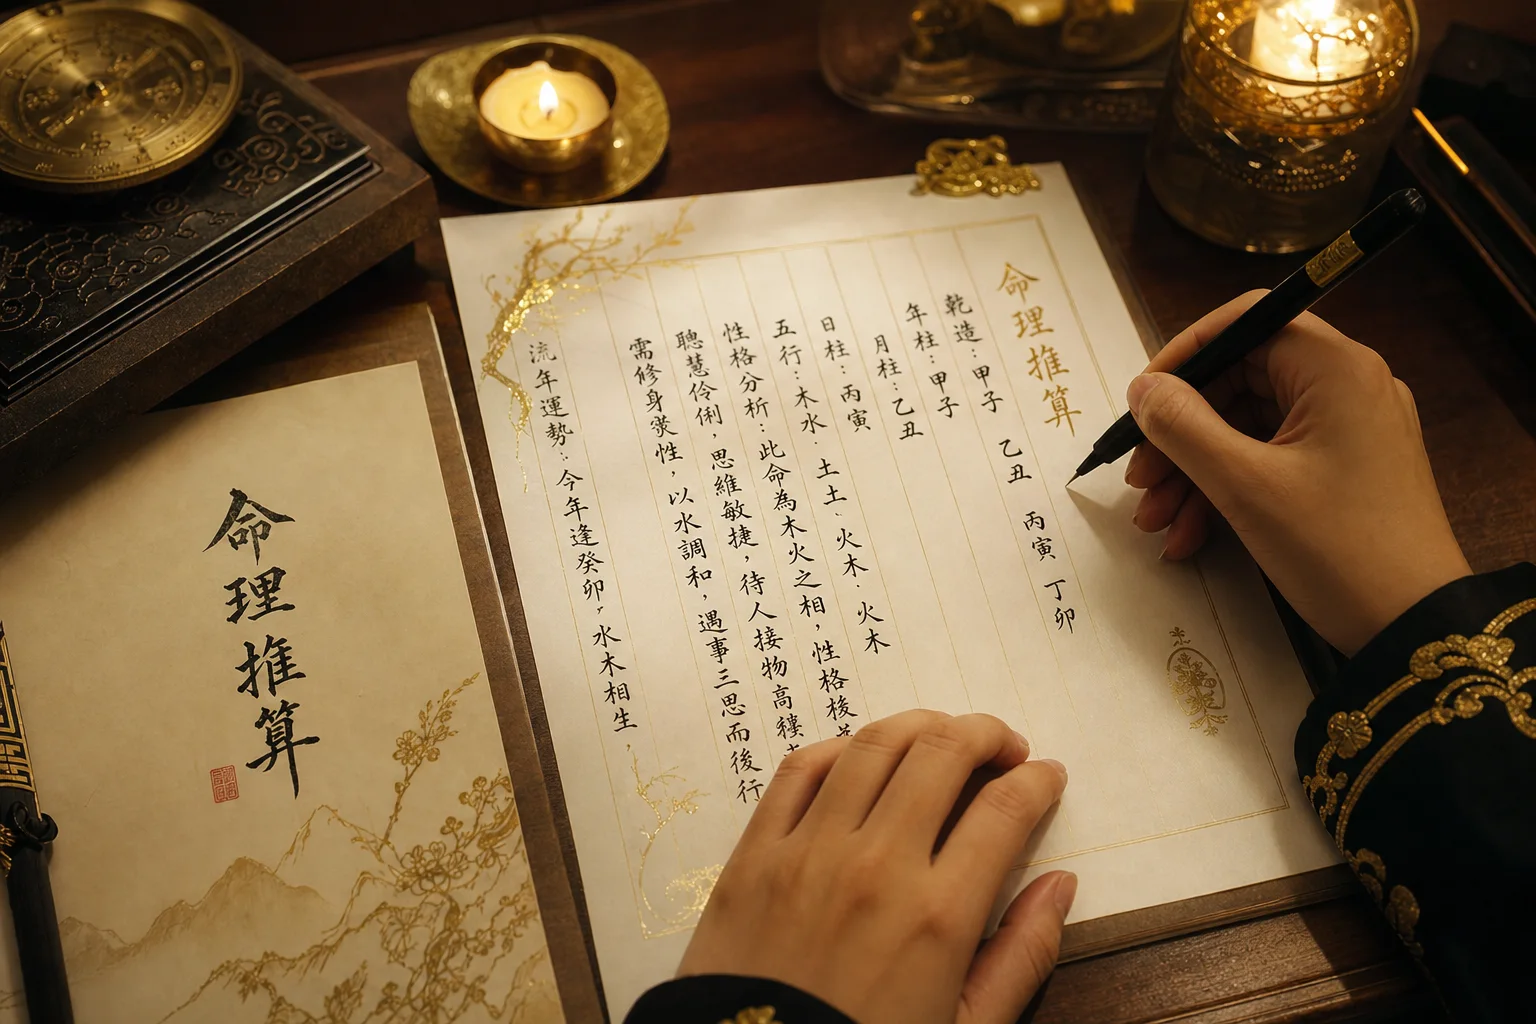 命理推算
乾造：甲子 乙丑 丙寅 丁卯
年柱：甲子
月柱：乙丑
日柱：丙寅
五行：木水．土土．火木．火木
性格分析：此命為木火之相，性格梭
聰慧伶俐，思維敏捷，待人接物高
需修身性，以水調和，遇事三思而後行
流年運勢：今年逢癸卯，水木相生，
命理推算